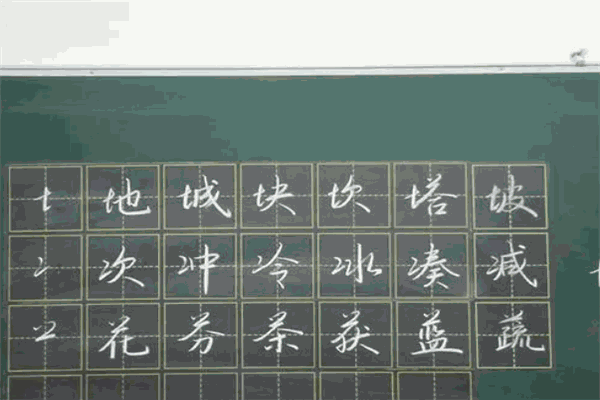 土地城块坎塔坡
冫次冲冷冰凑减
艹花芬茶获蓝蔬